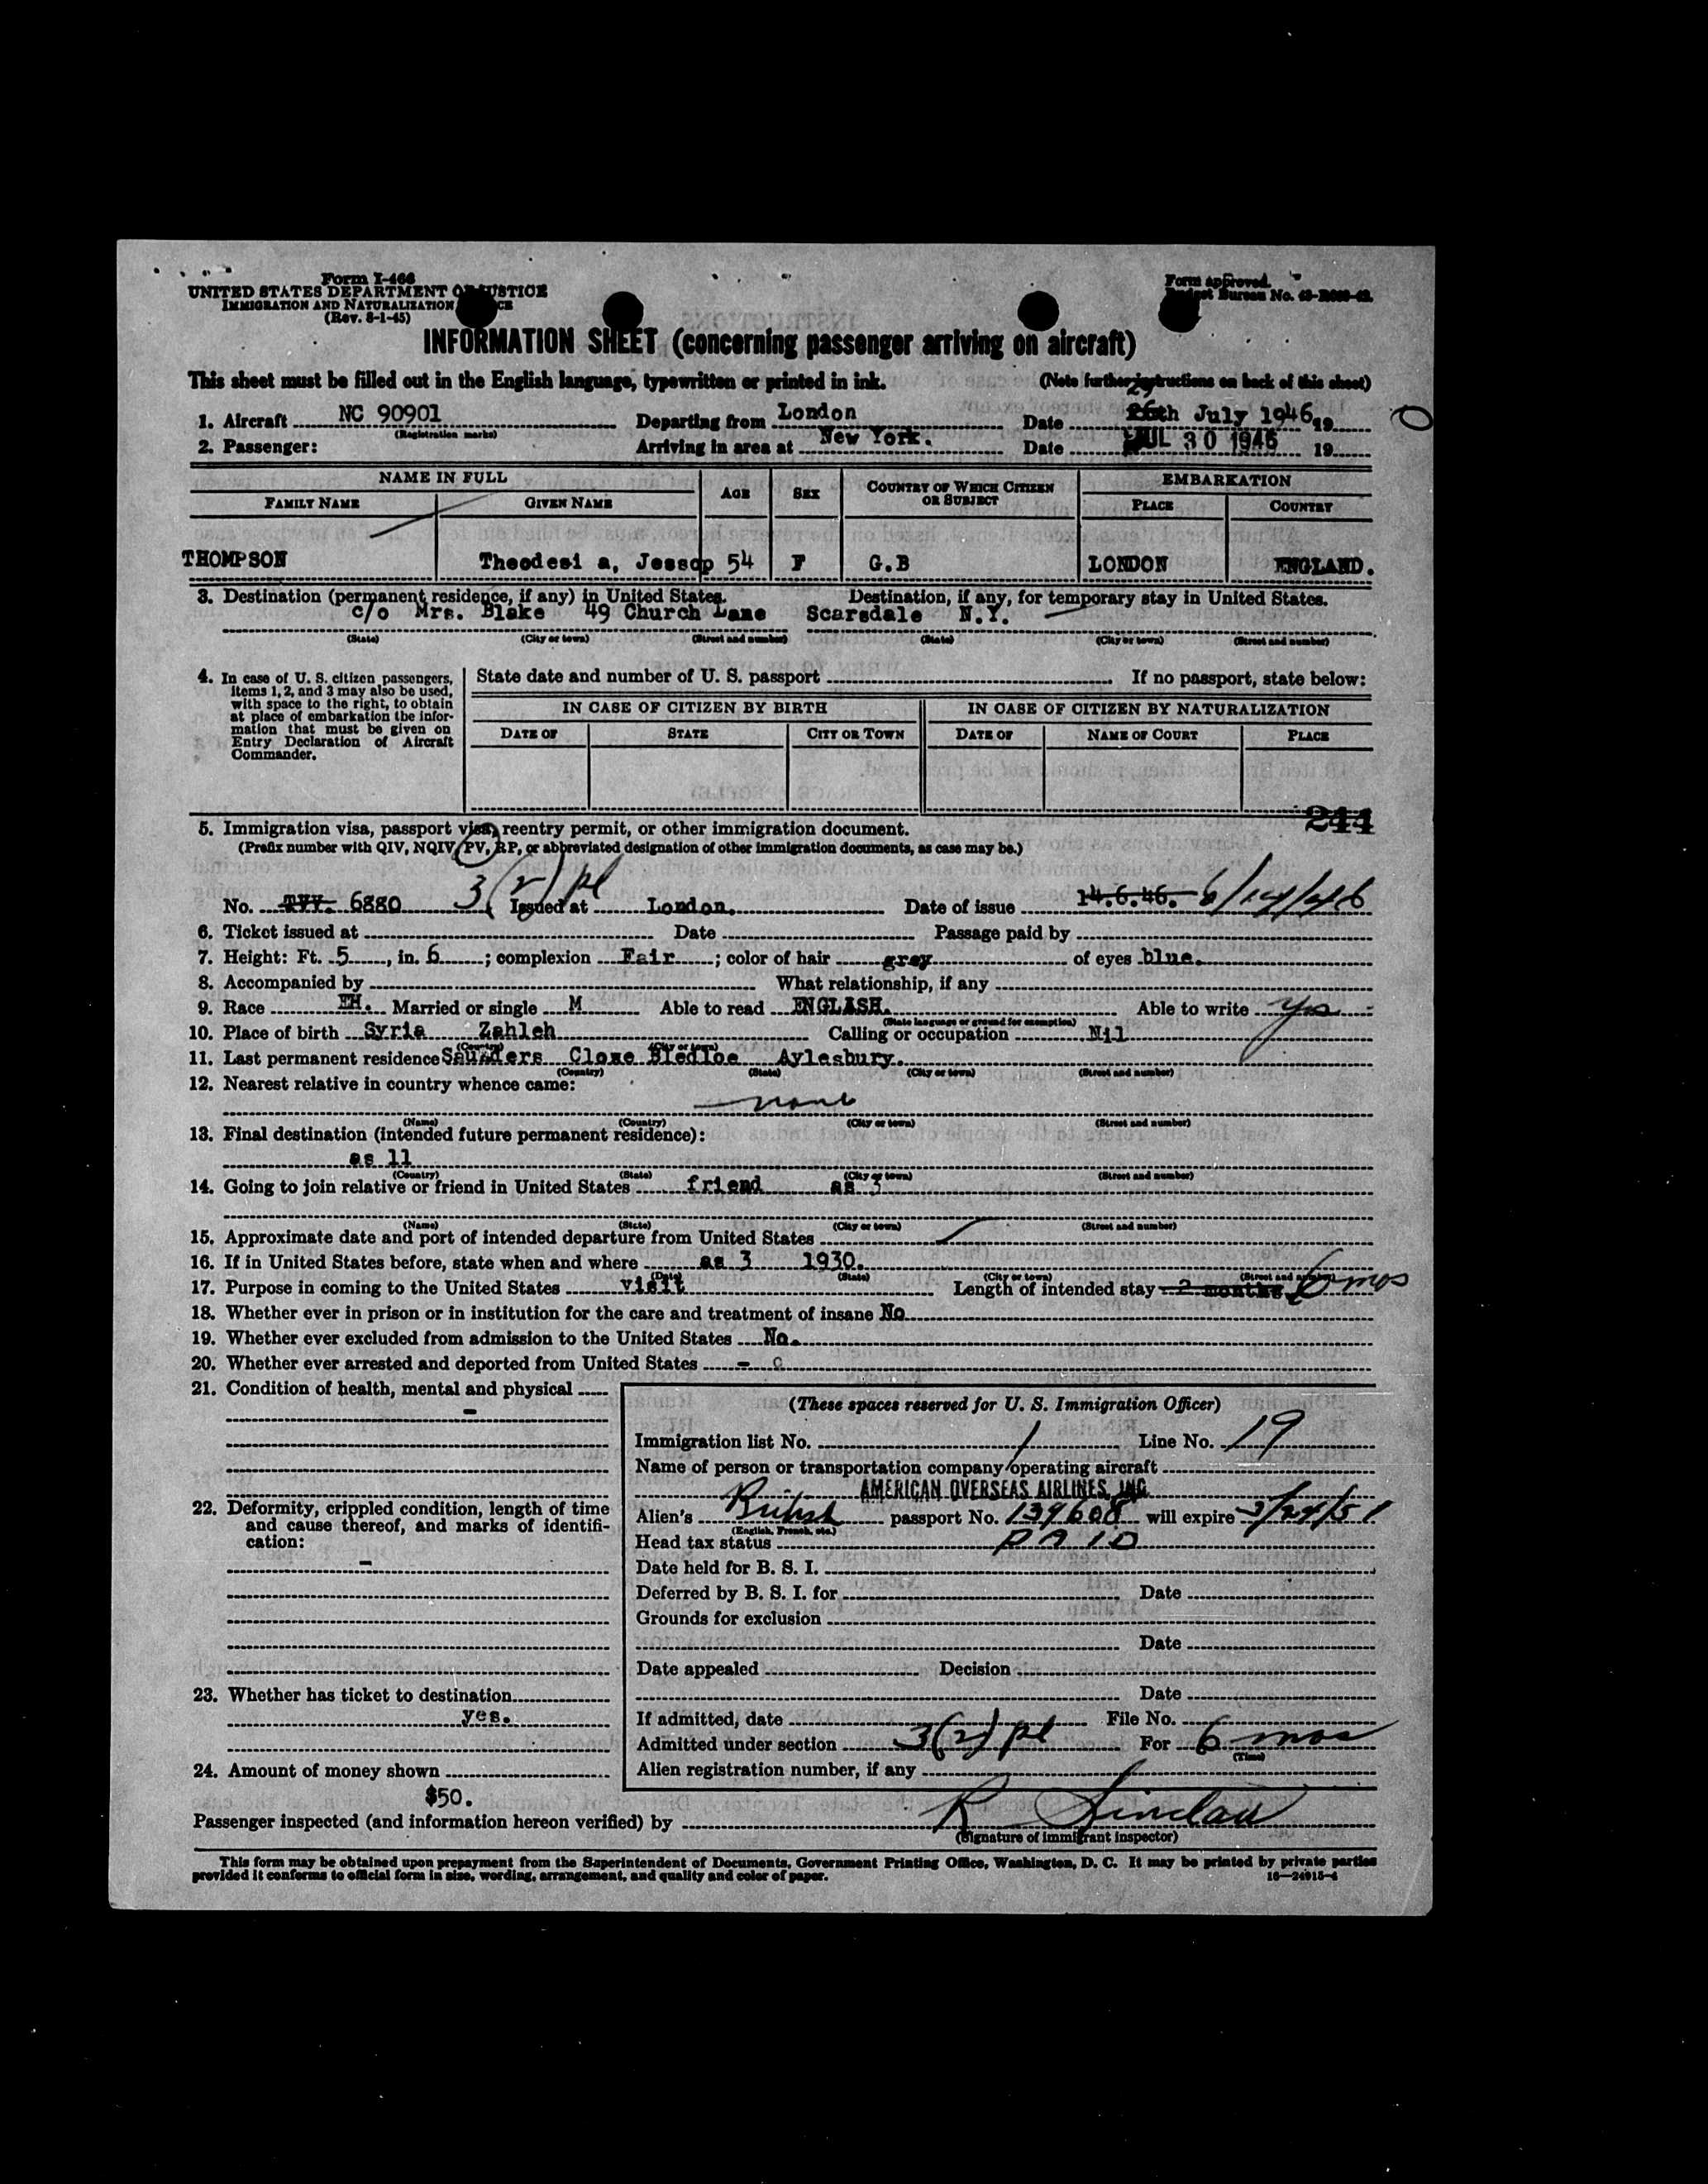 Form I-466
UNITED STATES DEPARTMENT OF JUSTICE
IMMIGRATION AND NATURALIZATION
(Rev. 8-1-45)
Form approved.
Budget Bureau No.
INFORMATION SHEET (concerning passenger arriving on aircraft)
This sheet must be filled out in the English language, typewritten or printed in ink. (Note further instructions on back of this sheet)
1. Aircraft NC 90901 Departing from London Date July 1946 19
(Registration marks)
2. Passenger: Arriving in area at New York. Date JUL 30 1946 19
NAME IN FULL AGE SEX COUNTRY OF WHICH CITIZEN OR SUBJECT EMBARKATION
FAMILY NAME GIVEN NAME PLACE COUNTRY
THOMPSON Theodesi a, Jessop 54 F G.B LONDON ENGLAND.
3. Destination (permanent residence, if any) in United States. Destination, if any, for temporary stay in United States.
c/o Mrs. Blake 49 Church Lane Scarsdale N.Y.
(State) (City or town) (Street and number) (State) (City or town) (Street and number)
4. In case of U. S. citizen passengers, items 1, 2, and 3 may also be used, with space to the right, to obtain at place of embarkation the information that must be given on Entry Declaration of Aircraft Commander.
State date and number of U. S. passport If no passport, state below:
IN CASE OF CITIZEN BY BIRTH IN CASE OF CITIZEN BY NATURALIZATION
DATE OF STATE CITY OR TOWN DATE OF NAME OF COURT PLACE
244
5. Immigration visa, passport visa, reentry permit, or other immigration document.
(Prefix number with QIV, NQIV, PV, RP, or abbreviated designation of other immigration documents, as case may be.)
3(2) pl
No. 6880 Issued at London. Date of issue 14.6.46. 6/14/46
6. Ticket issued at Date Passage paid by
7. Height: Ft. 5, in. 6; complexion Fair; color of hair grey of eyes blue.
8. Accompanied by What relationship, if any
9. Race EH. Married or single M Able to read ENGLASH. Able to write yes
(State language or ground for exemption)
10. Place of birth Syria Zahleh Calling or occupation Nil
(Country) (City or town)
11. Last permanent residence Saunders Close Bledloe Aylesbury.
(Country) (State) (City or town) (Street and number)
12. Nearest relative in country whence came:
none
(Name) (Country) (City or town) (Street and number)
13. Final destination (intended future permanent residence):
as 11
(Country) (State) (City or town) (Street and number)
14. Going to join relative or friend in United States friend as 3
(Name) (State) (City or town) (Street and number)
15. Approximate date and port of intended departure from United States
16. If in United States before, state when and where as 3 1930.
(Date) (State) (City or town) (Street and number)
17. Purpose in coming to the United States visit Length of intended stay 2 months 6 mos
18. Whether ever in prison or in institution for the care and treatment of insane No
19. Whether ever excluded from admission to the United States No.
20. Whether ever arrested and deported from United States -
21. Condition of health, mental and physical
-
22. Deformity, crippled condition, length of time and cause thereof, and marks of identification:
-
23. Whether has ticket to destination
yes.
24. Amount of money shown
$50.
(These spaces reserved for U. S. Immigration Officer)
Immigration list No. 1 Line No. 19
Name of person or transportation company operating aircraft
AMERICAN OVERSEAS AIRLINES, INC.
Alien's British passport No. 139608 will expire 3/29/51
(English, French, etc.)
Head tax status PAID
Date held for B. S. I.
Deferred by B. S. I. for Date
Grounds for exclusion
Date
Date appealed Decision
Date
If admitted, date File No.
Admitted under section 3(2) pl For 6 mos
(Time)
Alien registration number, if any
Passenger inspected (and information hereon verified) by R Sinclair
(Signature of immigrant inspector)
This form may be obtained upon prepayment from the Superintendent of Documents, Government Printing Office, Washington, D. C. It may be printed by private parties
provided it conforms to official form in size, wording, arrangement, and quality and color of paper. 16—24915-4